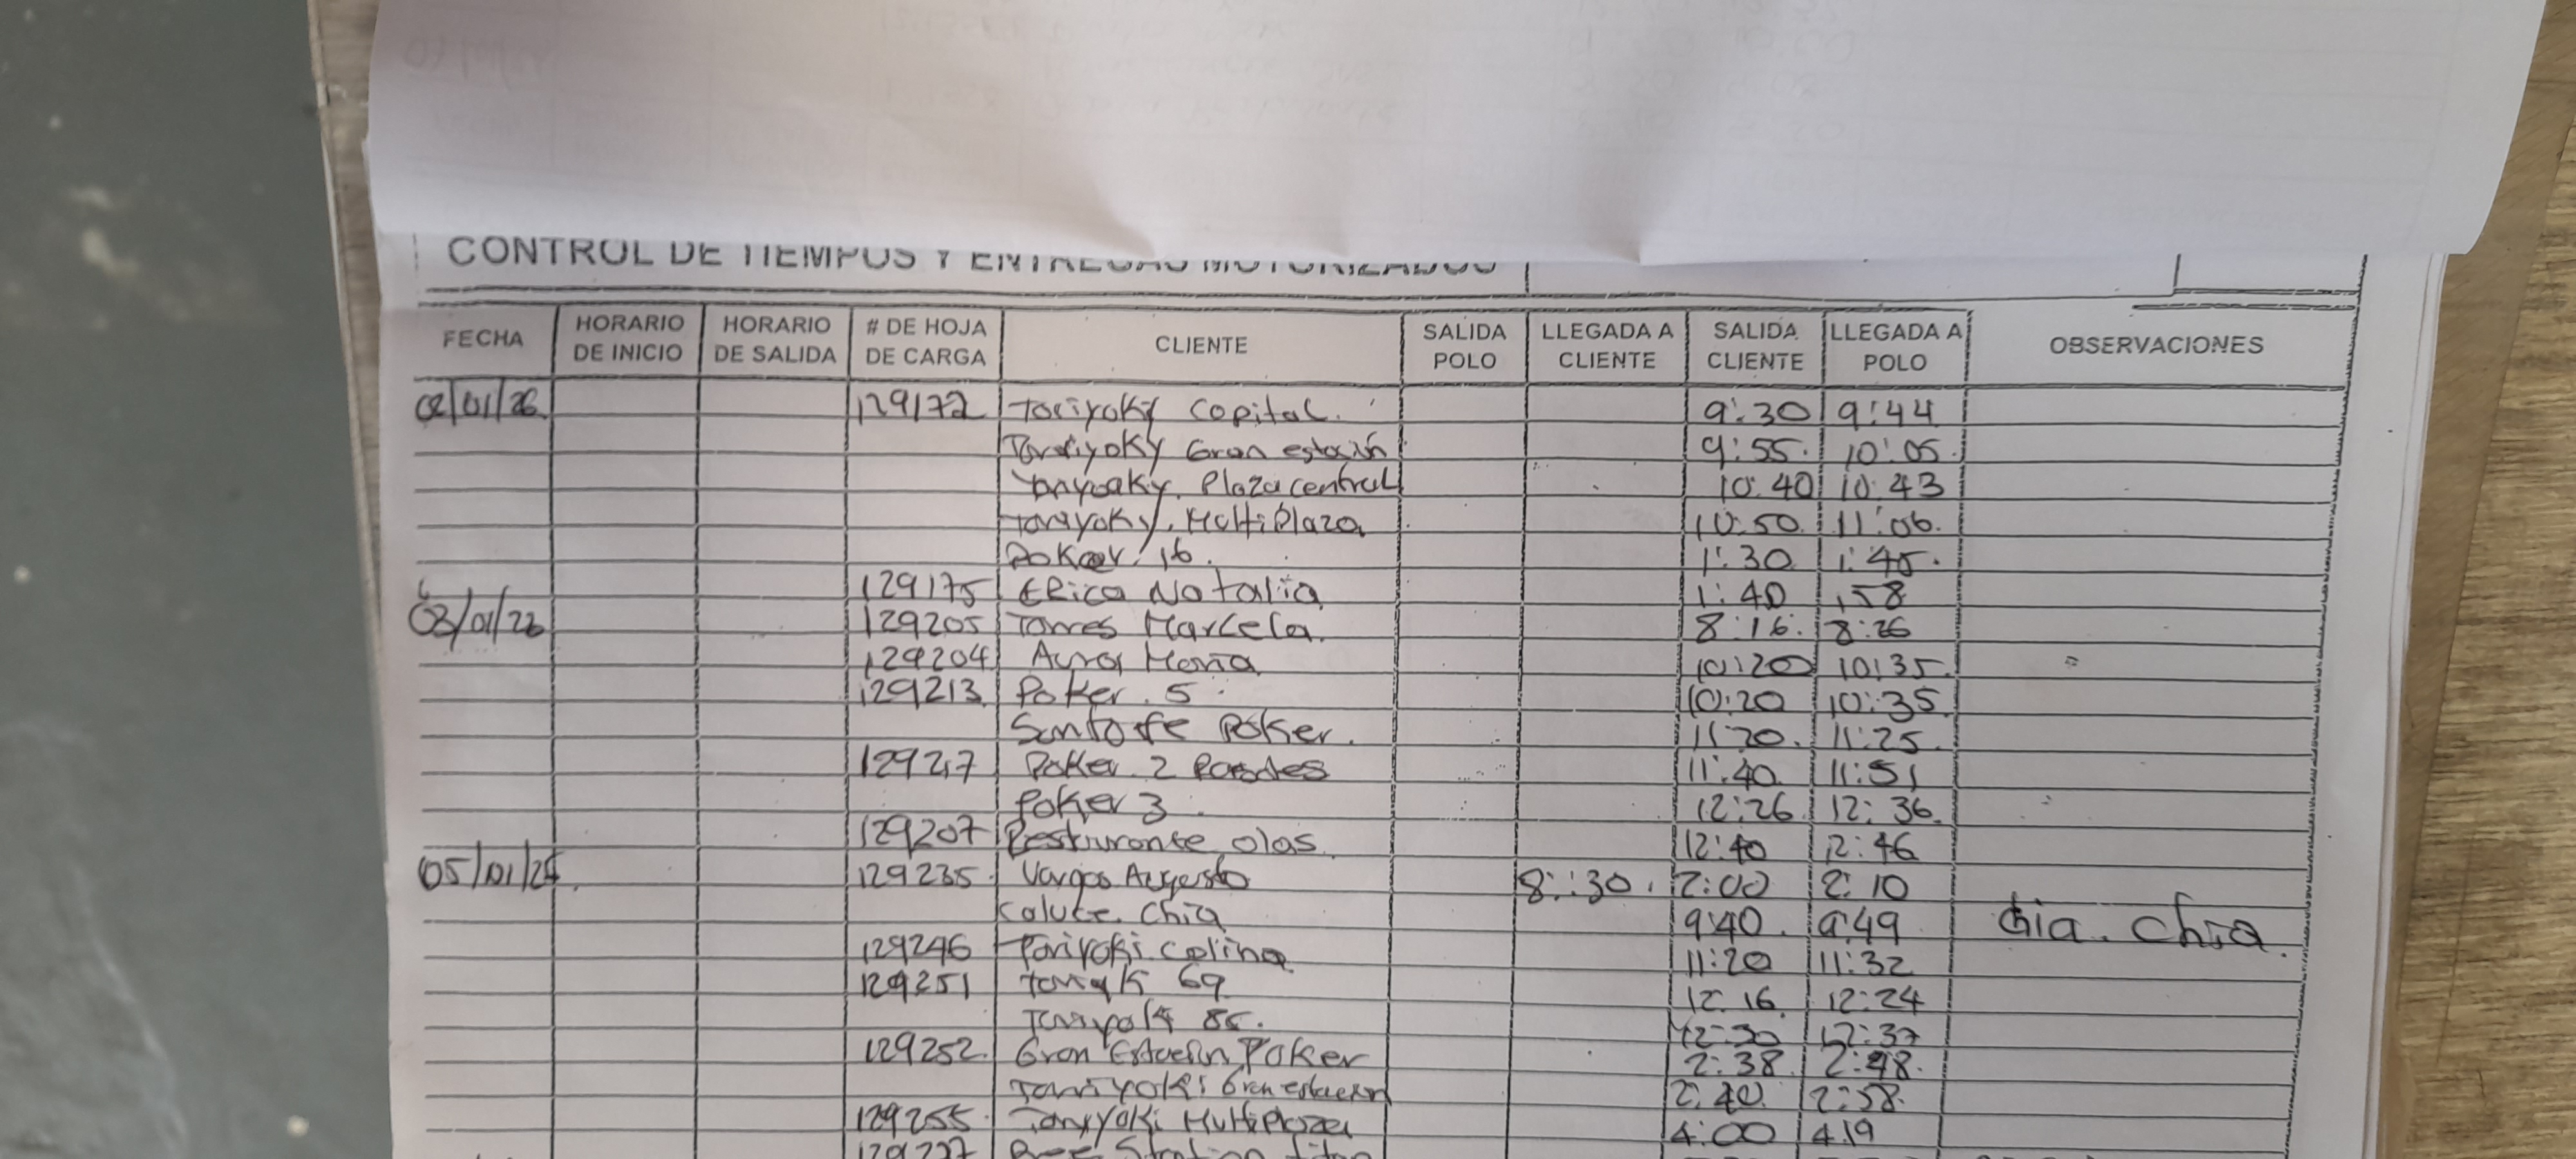 CONTROL DE TIEMPOS Y ENTREGAS MOTORIZADOS
FECHA HORARIO DE INICIO HORARIO DE SALIDA # DE HOJA DE CARGA CLIENTE SALIDA POLO LLEGADA A CLIENTE SALIDA CLIENTE LLEGADA A POLO OBSERVACIONES
02/01/26 129172 Toriyoky Capital. 9:30 9:44
Toriyoky Gran estación 9:55. 10:05.
Plaza central 10:40 10:43
Toriyoky. Multiplaza 10:50 11:06.
Poker. 16. 1:30 1:45.
129175 Erica Natalia 1:40 1,58
03/01/26 129205 Torres Marcela. 8:16. 8:26
129204 Aura Maria 10:20 10:35.
129213 Poker. 5 10:20 10:35.
Santa fe Poker. 11:20. 11:25.
129217 Poker 2 11:40. 11:51
Poker 3 12:26 12:36.
129207 Resturante olas. 12:40 12:46
05/01/26. 129235. Vargas Augusto 8:30. 2:00 2:10
Chia 9:40. 9:49 Chia.
129246 Toriyoki Colina 11:20 11:32
129251 69 12:16. 12:24
12:30 12:37
129252. Gran Estacion Poker 2:38. 2:48.
Toriyoki Gran estacion 2:40. 2:58.
129255. Toriyoki Multiplaza 4:00 4:19